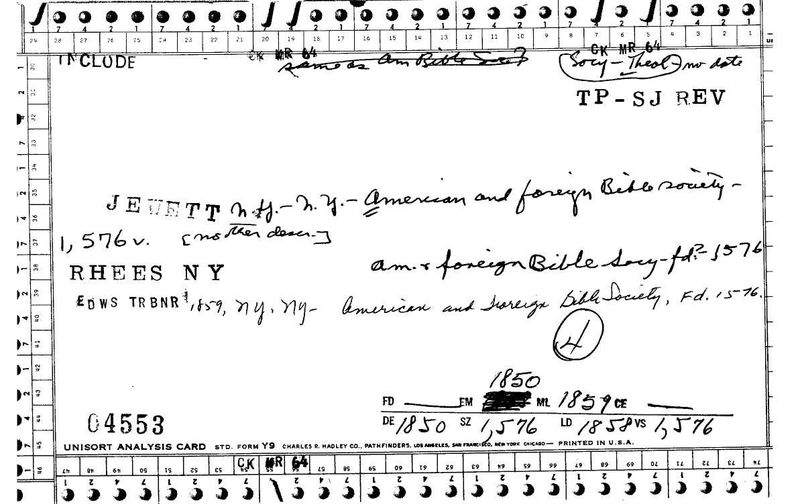 INCLUDE CK MR 64 same as Am Bible Soc? CK MR 64 Socy-Theol no date
TP-SJ REV
JEWETT N.Y.- N.Y.- American and foreign Bible society-
1,576v. [no other descr.]
RHEES NY am. & foreign Bible Socy-fd?-1576
EDWS TRBNR 1859, NY, NY- American and Foreign Bible Society, Fd. 1576.
4
1850
FD EM ML 1859 CE
04553 DE 1850 SZ 1,576 LD 1858 VS 1,576
UNISORT ANALYSIS CARD STD. FORM Y9 CHARLES R. HADLEY CO., PATHFINDERS, LOS ANGELES, SAN FRANCISCO, NEW YORK CHICAGO— PRINTED IN U.S.A.
CK MR 64